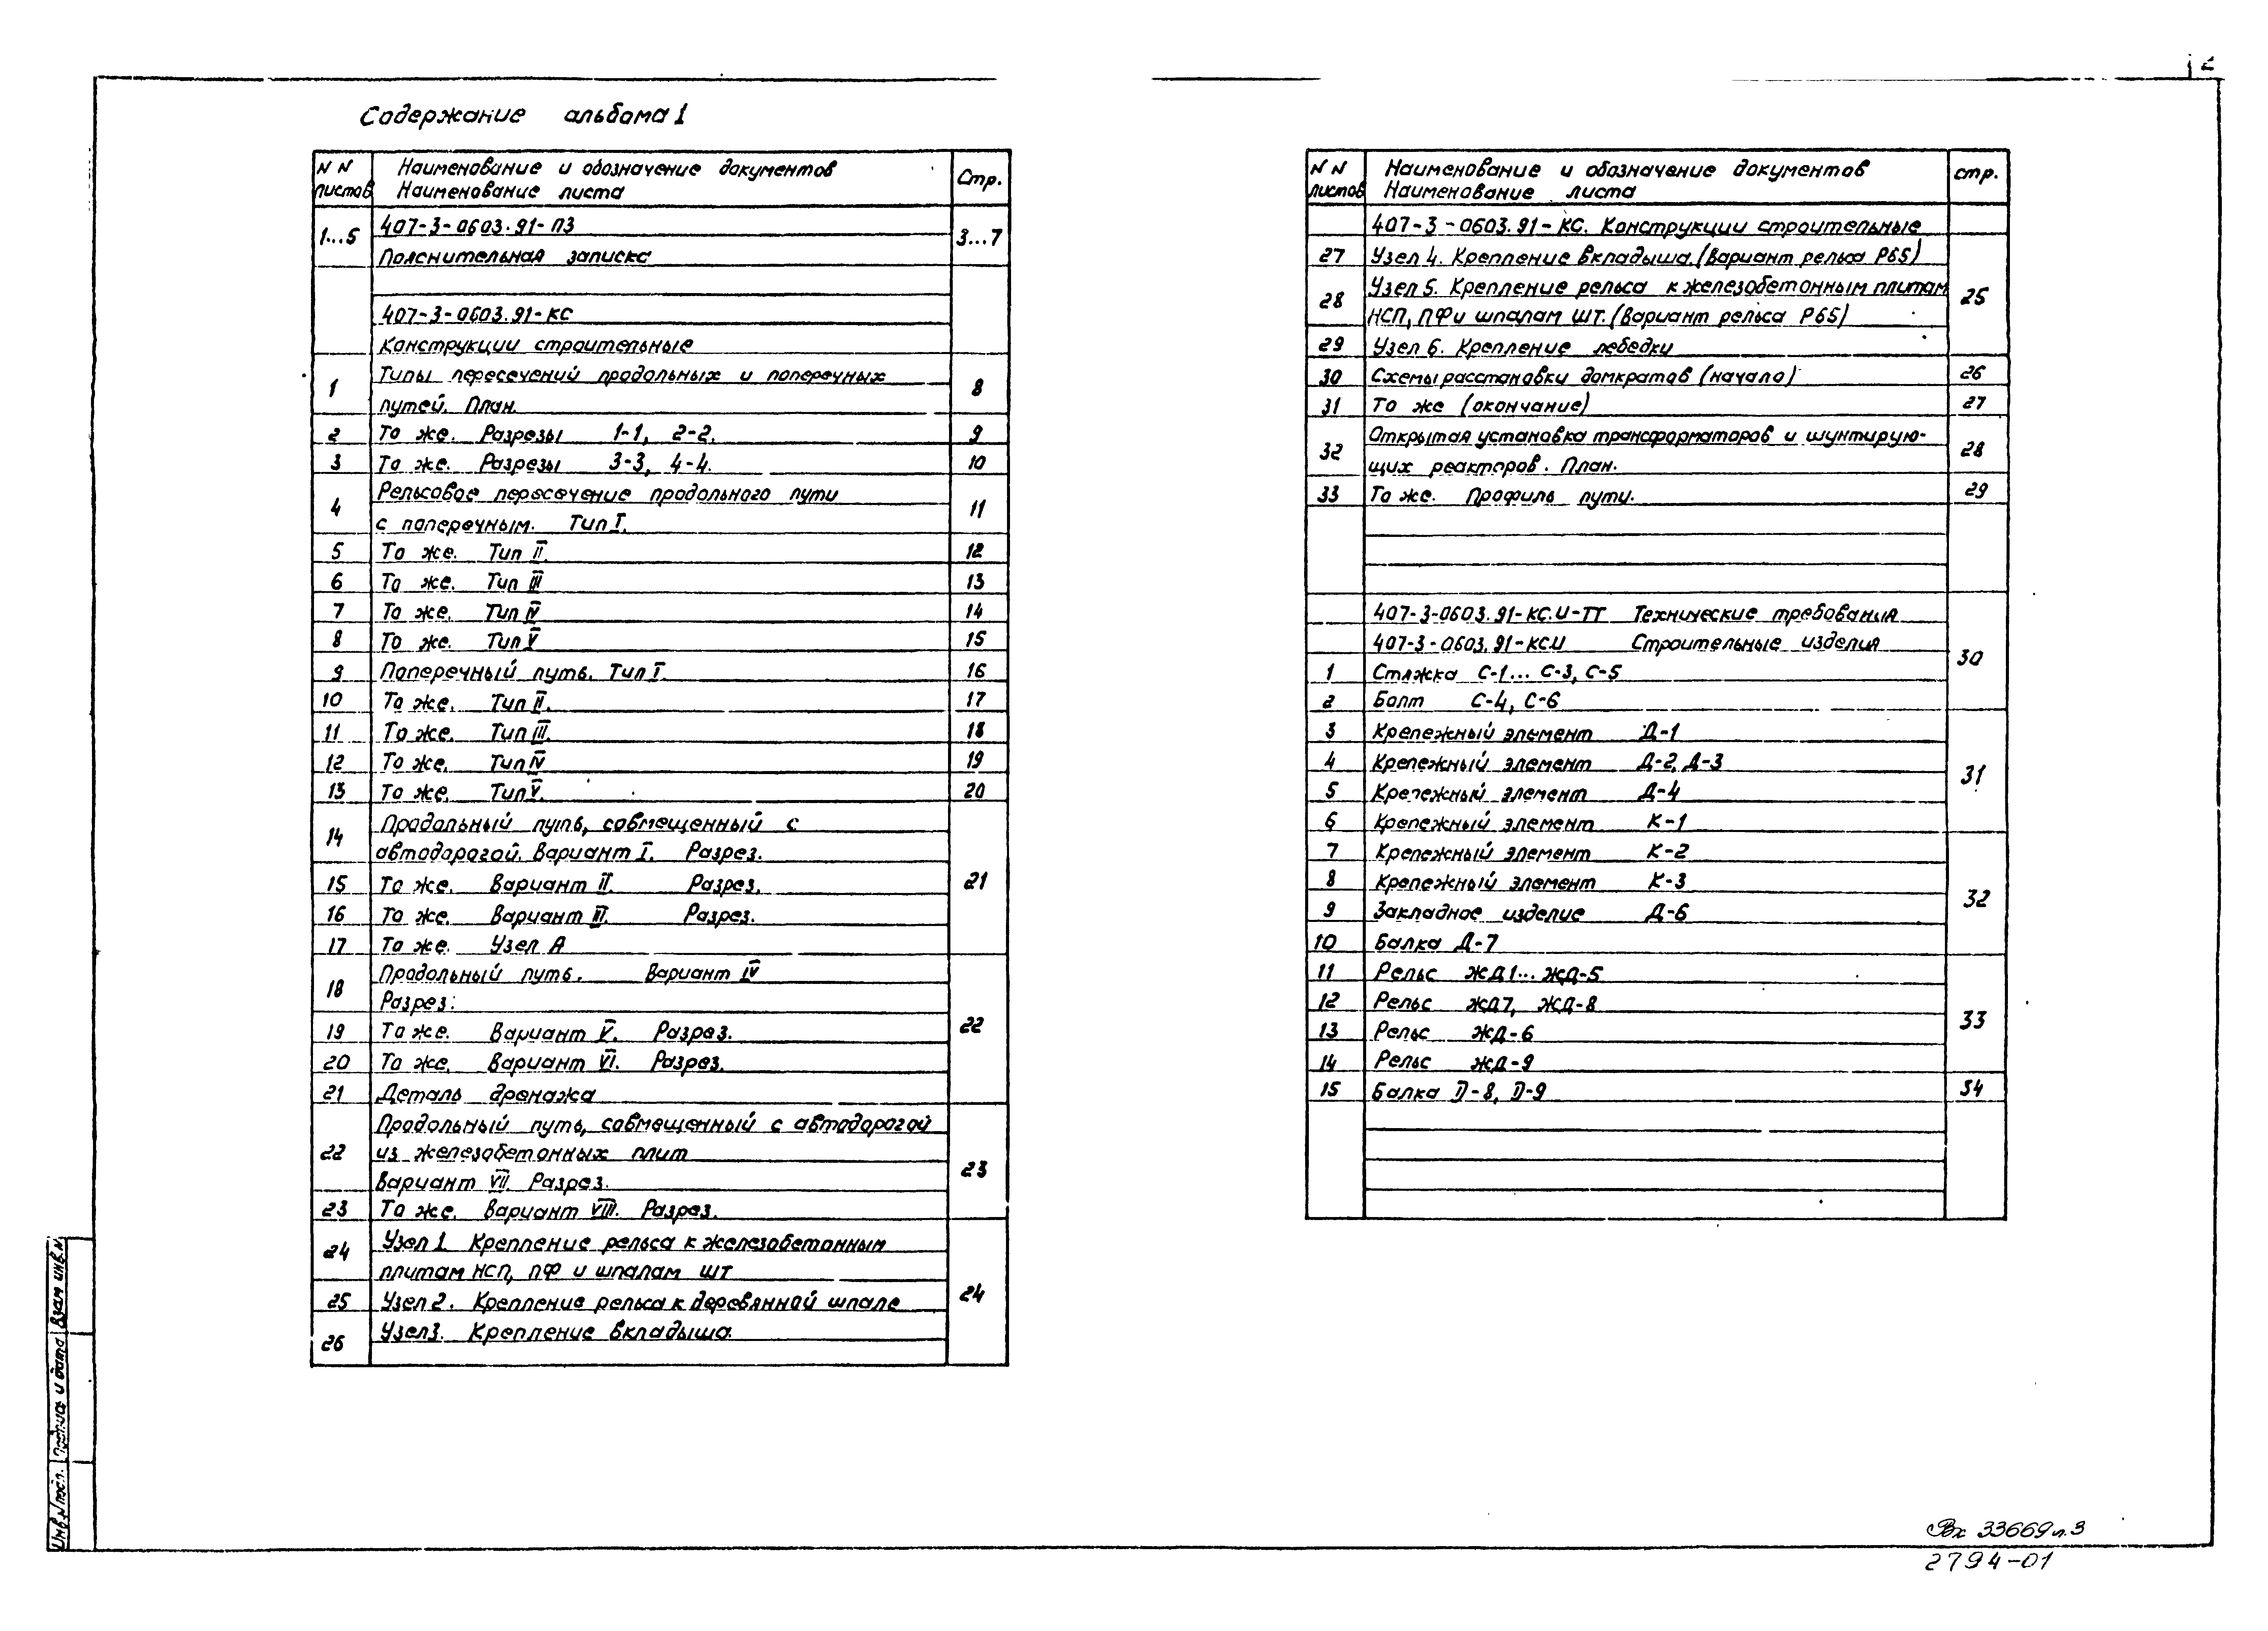 2
Содержание альбома 1
N N листов
Наименование и обозначение документов
Наименование листа
Стр.
1...5
407-3-0603.91-ПЗ
3...7
Пояснительная записка
407-3-0603.91-КС
Конструкции строительные
1
Типы пересечений продольных и поперечных
8
путей. План.
2 То же. Разрезы 1-1, 2-2. 9
3 То же. Разрезы 3-3, 4-4. 10
4
Рельсовое пересечение продольного пути
11
с поперечным. Тип I.
5 То же. Тип II. 12
6 То же. Тип III 13
7 То же. Тип IV 14
8 То же. Тип V 15
9 Поперечный путь. Тип I. 16
10 То же. Тип II. 17
11 То же. Тип III. 18
12 То же. Тип IV 19
13 То же. Тип V. 20
14
Продольный путь, совмещенный с
автодорогой. Вариант I. Разрез.
15 То же. Вариант II. Разрез. 21
16 То же. Вариант III. Разрез.
17 То же. Узел А
18
Продольный путь. Вариант IV
Разрез.
19 То же. Вариант V. Разрез. 22
20 То же. Вариант VI. Разрез.
21 Деталь дренажа
22
Продольный путь, совмещенный с автодорогой
из железобетонных плит
23
Вариант VII. Разрез.
23 То же. Вариант VIII. Разрез.
24
Узел 1. Крепление рельса к железобетонным
плитам НСП, ПФ и шпалам ШТ
25 Узел 2. Крепление рельса к деревянной шпале 24
26 Узел 3. Крепление вкладыша.
N N листов
Наименование и обозначение документов
Наименование листа
стр.
407-3-0603.91-КС. Конструкции строительные
27 Узел 4. Крепление вкладыша. (Вариант рельса Р65)
28
Узел 5. Крепление рельса к железобетонным плитам
25
НСП, ПФ и шпалам ШТ. (Вариант рельса Р65)
29 Узел 6. Крепление лебедки
30 Схемы расстановки домкратов (начало) 26
31 То же (окончание) 27
32
Открытая установка трансформаторов и шунтирую-
28
щих реакторов. План.
33 То же. Профиль пути. 29
407-3-0603.91-КС.И-ТТ Технические требования
407-3-0603.91-КСИ Строительные изделия
30
1 Стяжка С-1... С-3, С-5
2 Болт С-4, С-6
3 Крепежный элемент Д-1
4 Крепежный элемент Д-2, Д-3
31
5 Крепежный элемент Д-4
6 Крепежный элемент К-1
7 Крепежный элемент К-2
8 Крепежный элемент К-3
32
9 Закладное изделие Д-6
10 Балка Д-7
11 Рельс ЖД1... ЖД-5
12 Рельс ЖД7, ЖД-8
33
13 Рельс ЖД-6
14 Рельс ЖД-9
15 Балка Д-8, Д-9 34
Взам инв.N
Подпись и дата
Инв.N подл.
Вх 33669 л.3
2794-01